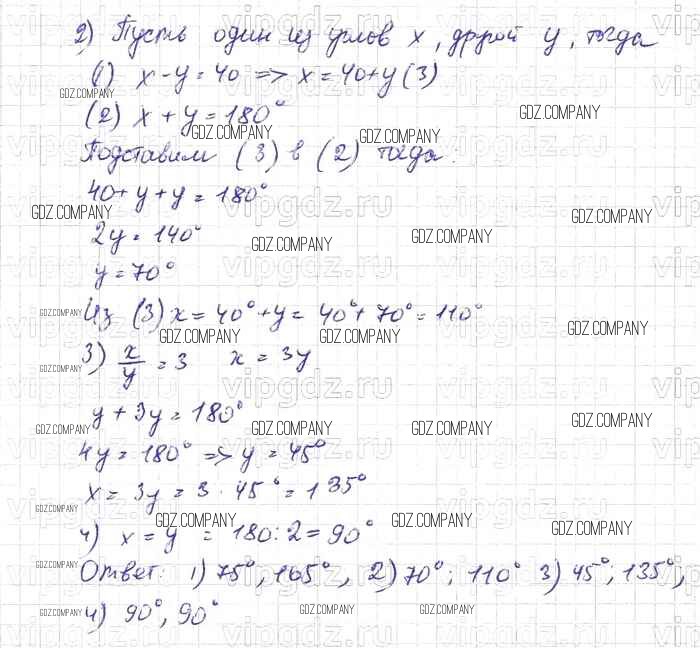 2) Пусть один из углов x, другой y, тогда
(1) x - y = 40 => x = 40 + y (3)
(2) x + y = 180°
Подставим (3) в (2) тогда:
40 + y + y = 180°
2y = 140°
y = 70°
Из (3) x = 40° + y = 40° + 70° = 110°
3) x/y = 3 x = 3y
y + 3y = 180°
4y = 180° => y = 45°
x = 3y = 3 · 45° = 135°
4) x = y = 180 : 2 = 90°
Ответ: 1) 75°, 105°, 2) 70°; 110° 3) 45°, 135°,
4) 90°, 90°
GDZ.COMPANY
vipgdz.ru